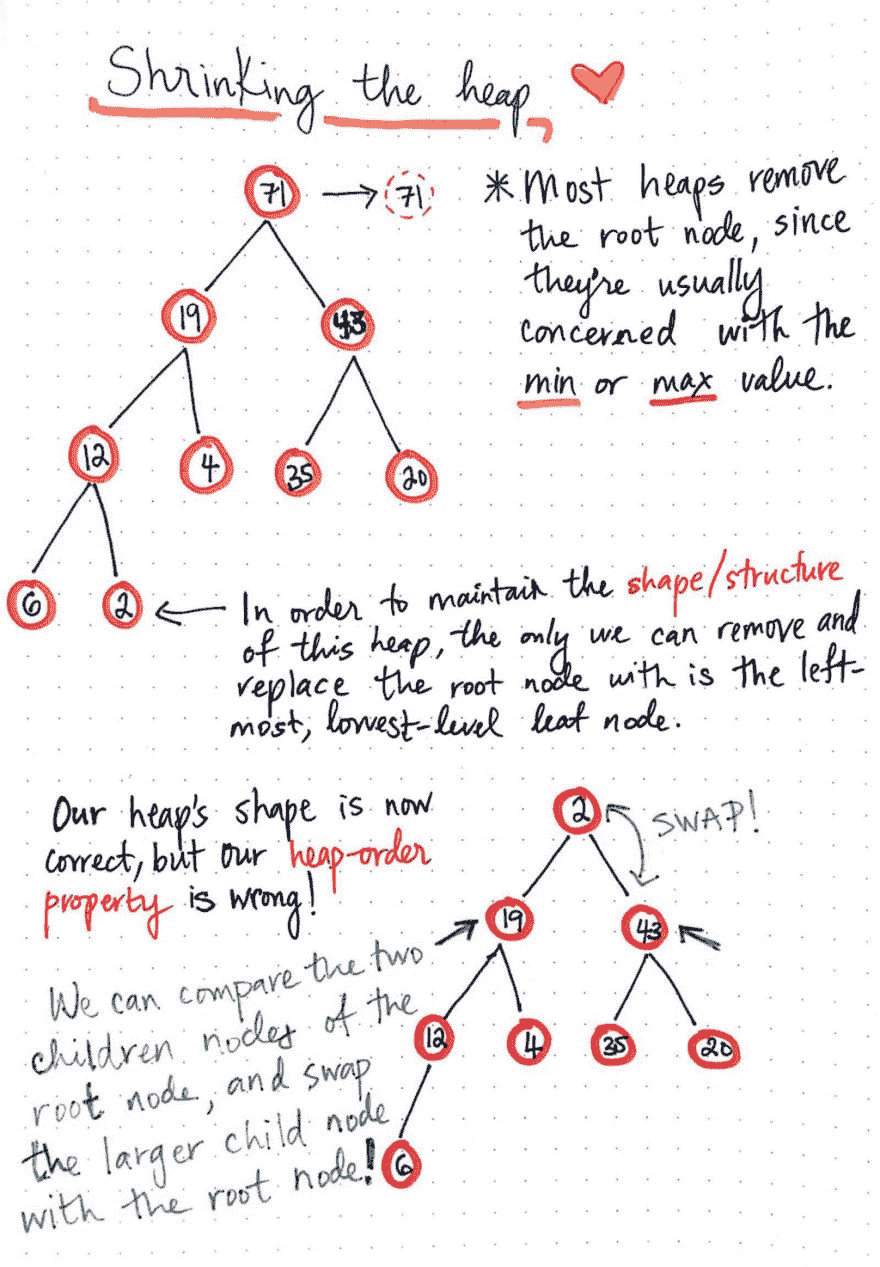 Shrinking the heap
71 → 71
19
43
12
4
35
20
6
2
* Most heaps remove
the root node, since
they're usually
concerned with the
min or max value.
← In order to maintain the shape/structure
of this heap, the only we can remove and
replace the root node with is the left-
most, lowest-level leaf node.
Our heap's shape is now
correct, but our heap-order
property is wrong!
We can compare the two
children nodes of the
root node, and swap
the larger child node
with the root node!
2
SWAP!
19
43
12
4
35
20
6